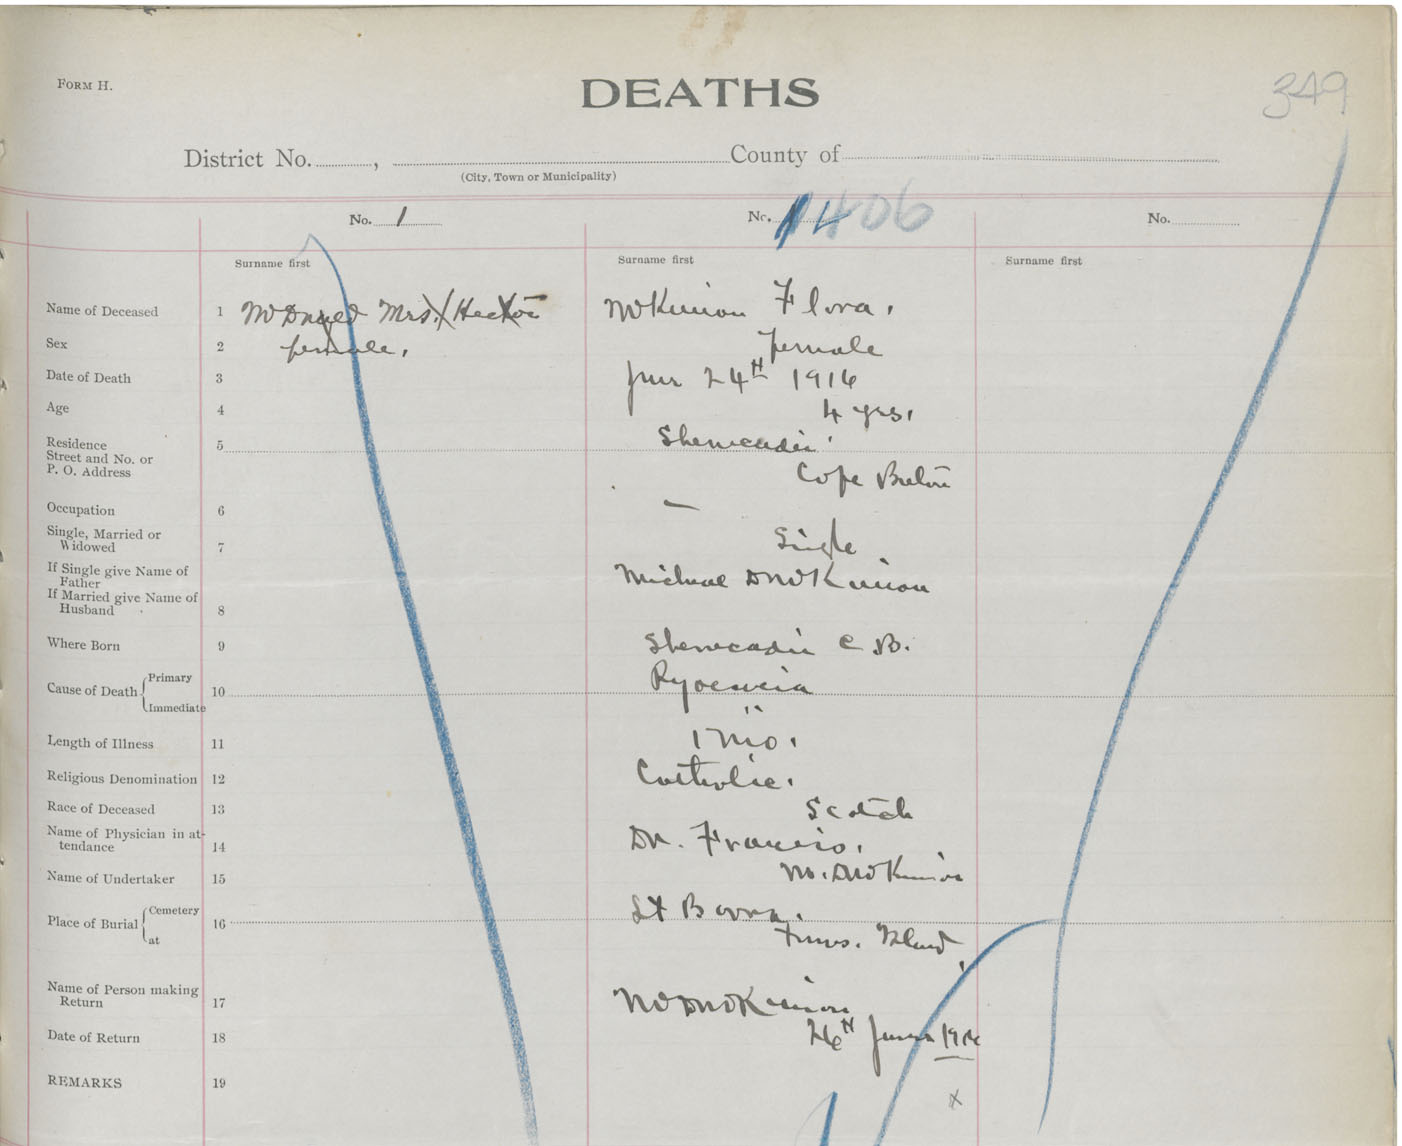 FORM H.
DEATHS
349
District No. , County of
(City, Town or Municipality)
No. 1
No. 14 406
No.
Surname first
Surname first
Surname first
Name of Deceased 1 Mrs. Hector McKinnon Flora.
Sex 2 female. female
Date of Death 3 24th 1916
Age 4 4 yrs.
Residence
Street and No. or
P. O. Address
5 Shenacadie
Cape Breton
Occupation 6 —
Single, Married or
Widowed
7 Single
If Single give Name of
Father
If Married give Name of
Husband
8 Michael D McKinnon
Where Born 9 Shenacadie C B.
Cause of Death Primary
Immediate
10
"
Length of Illness 11 1 mo.
Religious Denomination 12 Catholic.
Race of Deceased 13 Scotch
Name of Physician in at-
tendance
14 Dr. Francis.
Name of Undertaker 15 M. D McKinnon
Place of Burial Cemetery
at
16 St Barra.
Island
Name of Person making
Return
17 M D McKinnon
Date of Return 18 26th June 1916
REMARKS 19
x